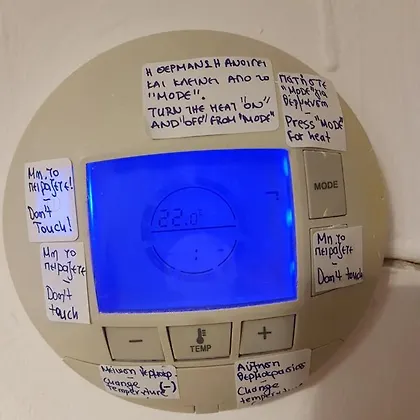 Η ΘΕΡΜΑΝΣΗ ΑΝΟΙΓΕΙ
ΚΑΙ ΚΛΕΙΝΕΙ ΑΠΟ ΤΟ
"MODE".
TURN THE HEAT "ON"
AND "OFF" FROM "MODE"
ΠΑΤΗΣΤΕ
"MODE" για
θέρμανση
–
Press "MODE"
for heat
Μη το
πειράζετε!
–
Don't
Touch!
MODE
22.0°
Μη το
πειράζετε
–
Don't
touch
Μη το
πειράζετε
–
Don't touch
–
TEMP
+
Μείωση θερμοκρ.
Change (–)
temperature
Αύξηση
θερμοκρασίας
–
Change